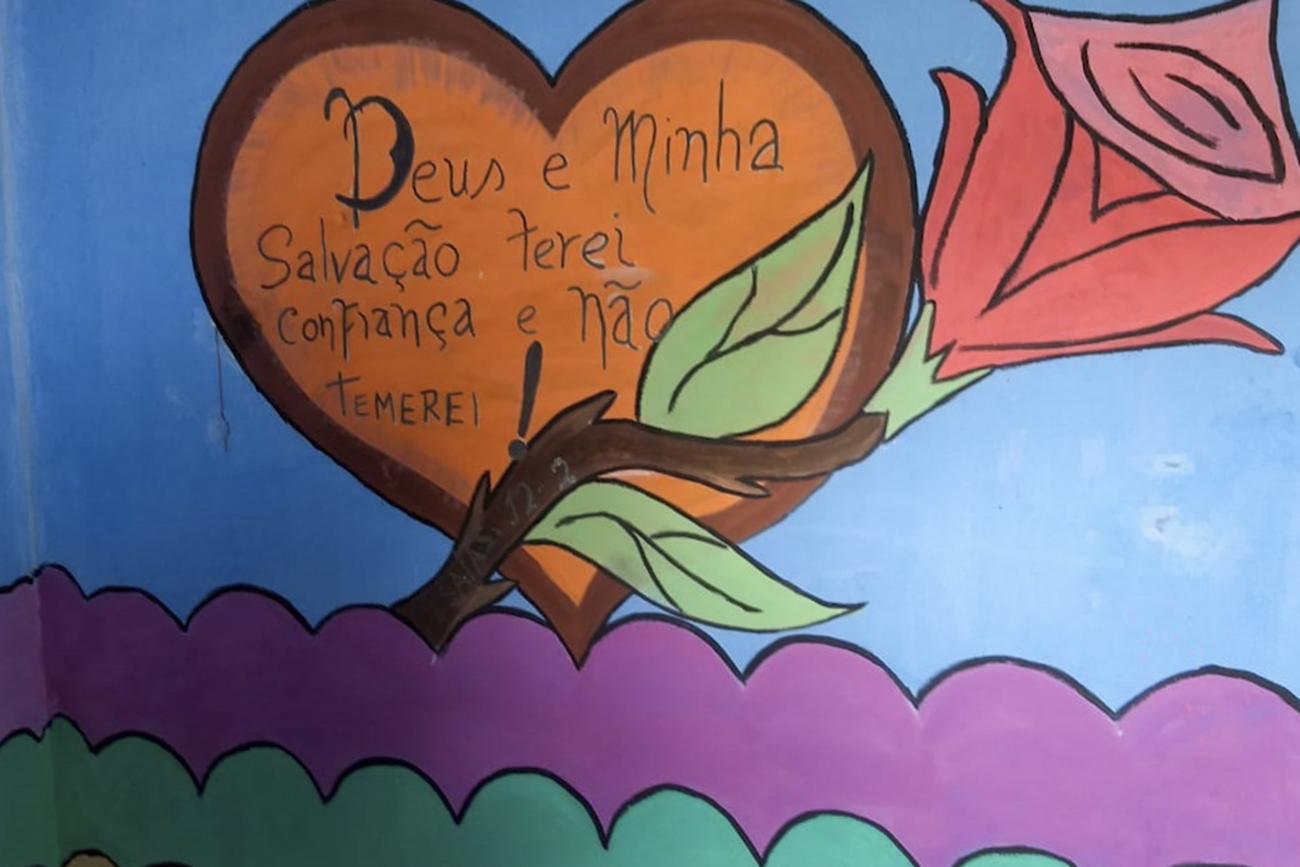 Deus e Minha
Salvação terei
confiança e Não
TEMEREI !
12.2